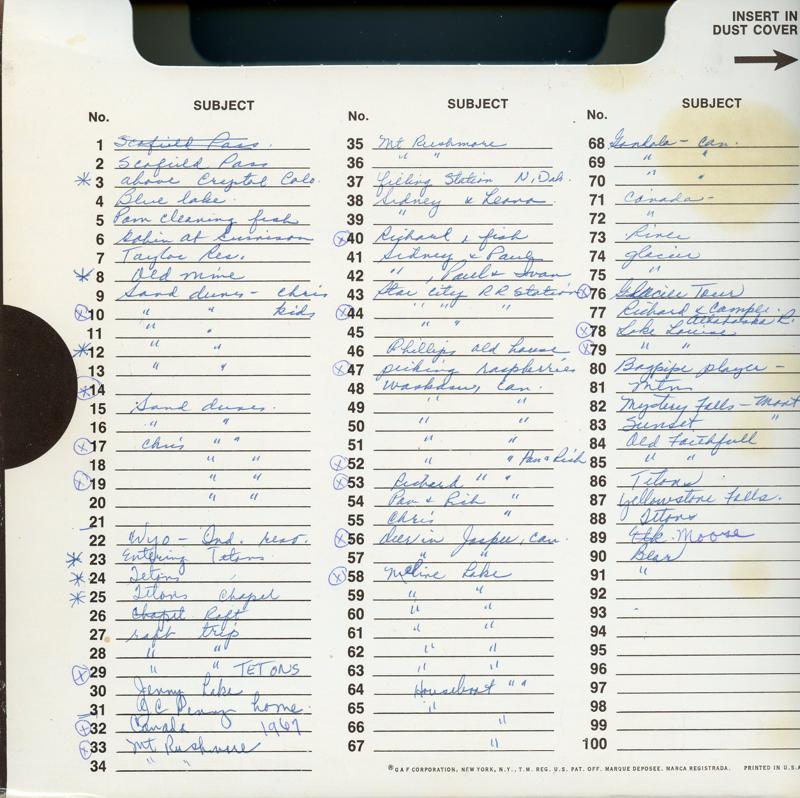 INSERT IN
DUST COVER
No. SUBJECT
1 Scofield Pass.
2 Scofield Pass
3 above Crystal Colo.
4 Blue lake.
5 Pam cleaning fish
6 cabin at Gunnison
7 Taylor Res.
8 Old mine
9 Sand dunes - Chris
10 " " kids
11 " "
12 " "
13 " "
14
15 Sand dunes.
16 " "
17 Chris " "
18 " "
19 " "
20 " "
21
22 Wyo - Ind. rest.
23 Entering Tetons
24 Tetons
25 Tetons Chapel
26 Chapel Raft
27 raft trip
28 " "
29 " " TETONS
30 Jenny Lake
31 JC Penny home.
32 Canada 1967
33 Mt Rushmore
34 " "
No. SUBJECT
35 Mt Rushmore
36 " "
37 Filling Station N. Dak.
38 Sidney & Leona
39 "
40 Richard & fish
41 Sidney & Paul
42 ", Paul & Ivan
43 Star city R R Station
44 " " "
45 " "
46 Phillips old house
47 picking raspberries
48 can.
49 " "
50 " "
51 " "
52 " " Pam & Rich
53 Richard " "
54 Pam & Rich "
55 Chris "
56 Deer in Jasper, can.
57 " "
58 Maline Lake
59 " "
60 " "
61 " "
62 " "
63 " "
64 Houseboat " "
65 "
66 "
67 "
No. SUBJECT
68 Gondola - can.
69 " "
70 " "
71 Canada -
72 " "
73 River
74 glacier
75 "
76 Glacier Tour
77 Richard & camper Athabaska R.
78 Lake Louise
79 " "
80 Bagpipe player -
81 Mtns
82 Mystery Falls - Mont
83 Sunset "
84 Old Faithfull
85 " "
86 Tetons
87 Yellowstone Falls.
88 Tetons
89 Elk. Moose
90 Bear
91 "
92
93
94
95
96
97
98
99
100
®GAF CORPORATION, NEW YORK, N.Y., T.M. REG. U.S. PAT. OFF. MARQUE DEPOSEE. MARCA REGISTRADA. PRINTED IN U.S.A